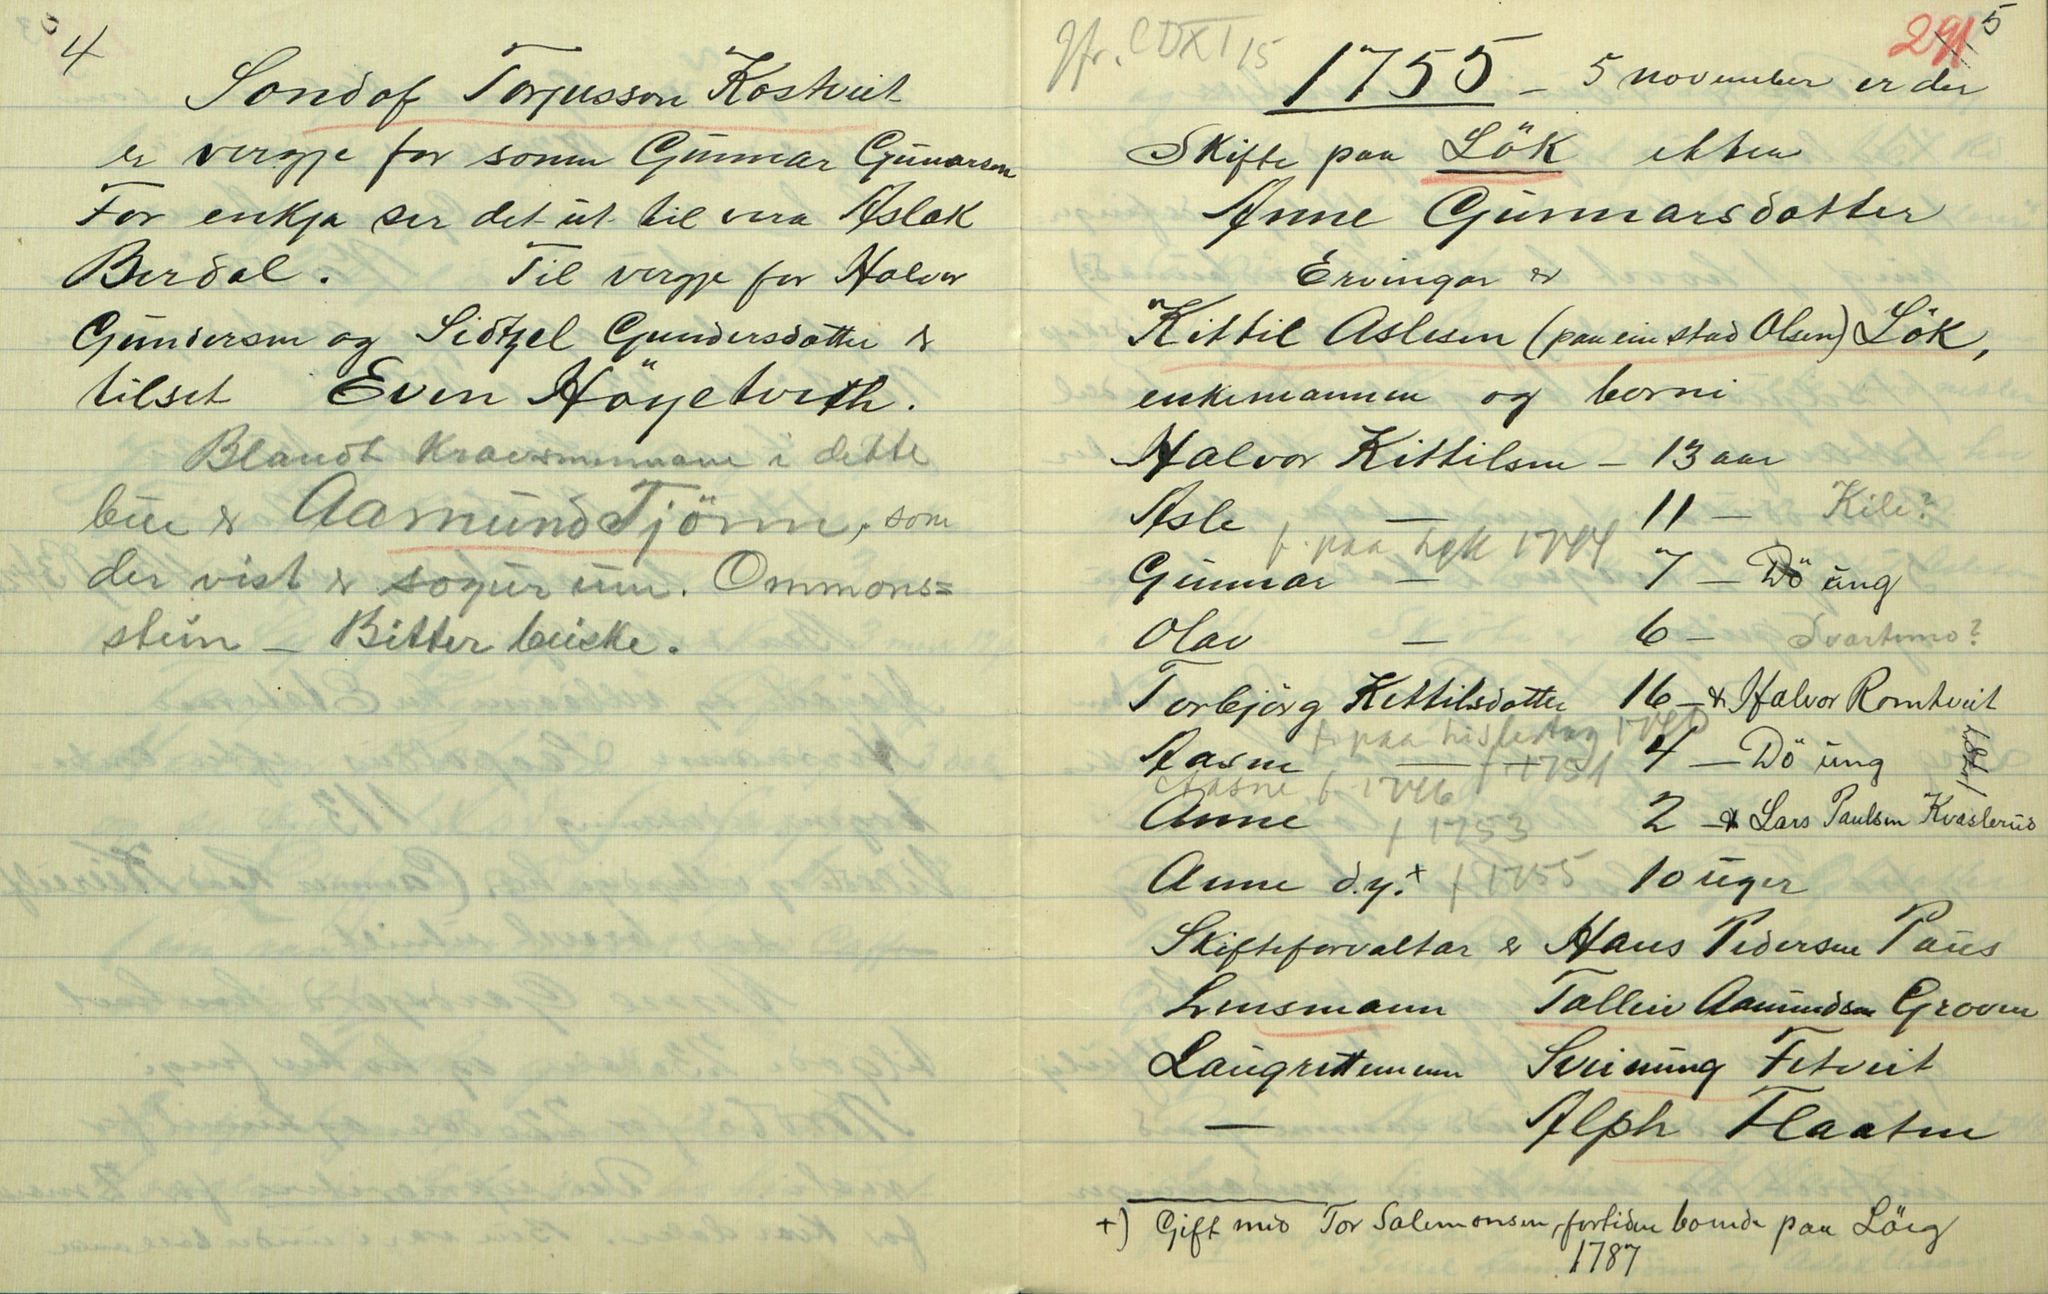 4
Sondof Torjusson Kostveit
er vergje for sonen Gunnar Gunarson
For enkja ser det ut til vera Aslak
Berdal. Til vergje for Halvor
Gundersen og Sidtzel Gundersdotter er
tilset Even Höyetveith.
Blandt kravsmennane i dette
bue er Aamund Tjönn, som
der vist er sogur um. Ommons=
stein – Bitterbeiske.
Jfr. CDXI 15
291 5
1755 – 5 november er der
Skifte paa Lök etter
Anne Gunnarsdotter
Ervingar er
Kittil Aslesen (paa ein stad Olsen) Lök,
enkemannen og borni
Halvor Kittilsen – 13 aar
Asle — 11 — Kile?
f. paa Løk 1744
Gunnar — 7 — Dö ung
Olav — 6 — Svartemo?
Torbjörg Kittilsdotter 16 – Halvor Romtveit
1740
Aasne — † 1751 4 — Dö ung
1781
Aasne f. 1746
Anne † 1753 2 – Lars Paulsen Kvaslerud
Anne d.y.+ † 1755 10 uger
Skifteforvaltar er Hans Pedersen Paus
Lensmann Talleiv Aamundsen Groven
Laugrettemenn Sveinung Fetveit
— Alph Flaaten
+) Gift med Tor Salomonsen, fortiden boende paa Löeg
1787